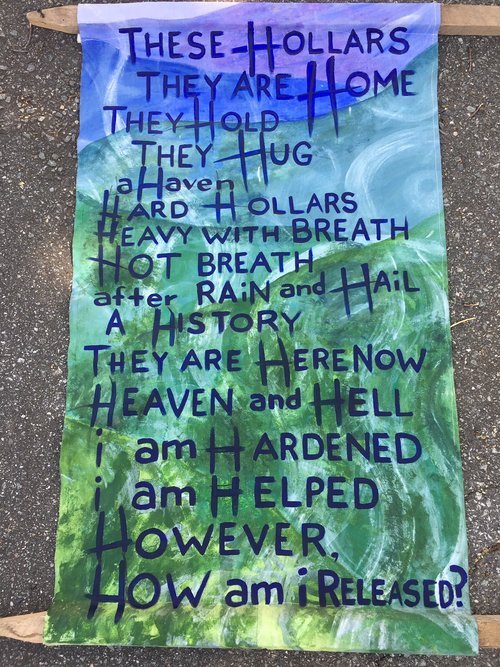 THESE HOLLARS
THEY ARE HOME
THEY HOLD
THEY HUG
a Haven
HARD HOLLARS
HEAVY WITH BREATH
HOT BREATH
after RAiN and HAiL
A HISTORY
THEY ARE HERE NOW
HEAVEN and HELL
i am HARDENED
i am HELPED
HOWEVER,
HOW am i RELEASED?